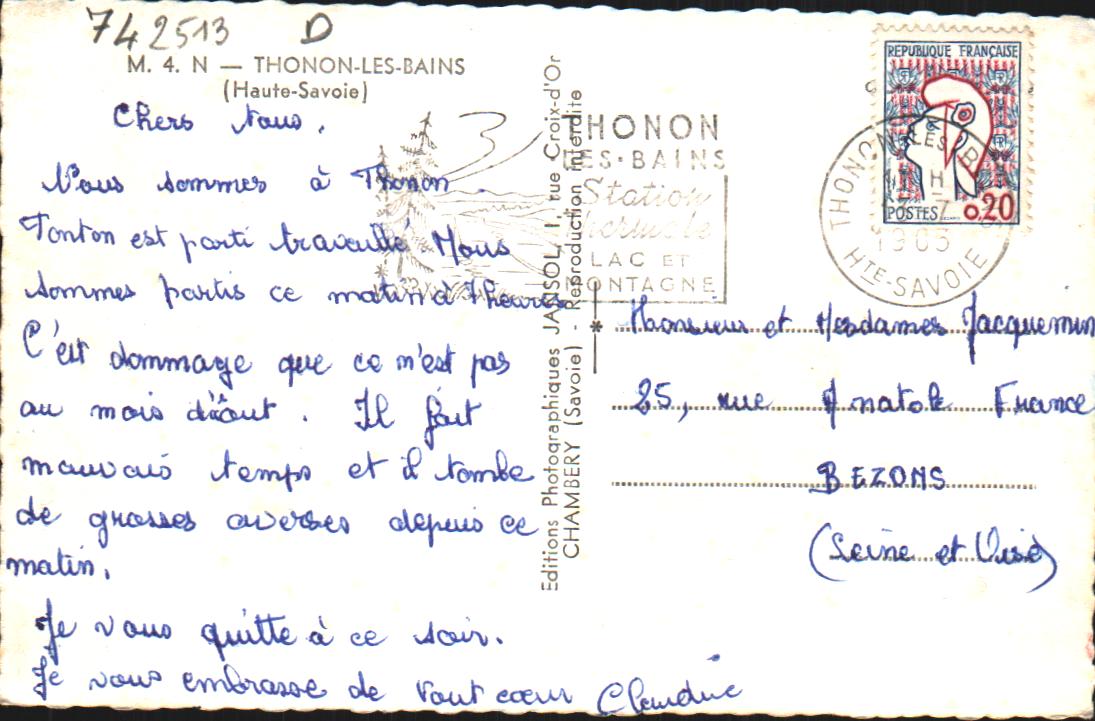 742513 D
M. 4. N — THONON-LES-BAINS
(Haute-Savoie)
Chers tous.
Nous sommes à Thonon.
Tonton est parti travaillé Nous
sommes partis ce matin à 7 heures
C'est dommage que ce n'est pas
au mois d'août. Il fait
mauvais temps et il tombe
de grosses averses depuis ce
matin.
Je vous quitte à ce soir.
Je vous embrasse de tout cœur Claudine
Editions Photographiques JANSOL, 1, rue Croix-d'Or
CHAMBERY (Savoie) - Reproduction interdite
THONON
LES-BAINS
Station
thermale
LAC ET
MONTAGNE
REPUBLIQUE FRANÇAISE
POSTES 0,20
THONON LES B
H
7
1963
HTE-SAVOIE
Monsieur et Mesdames Jacquemin
25, rue Anatole France
BEZONS
(Seine et Oise)